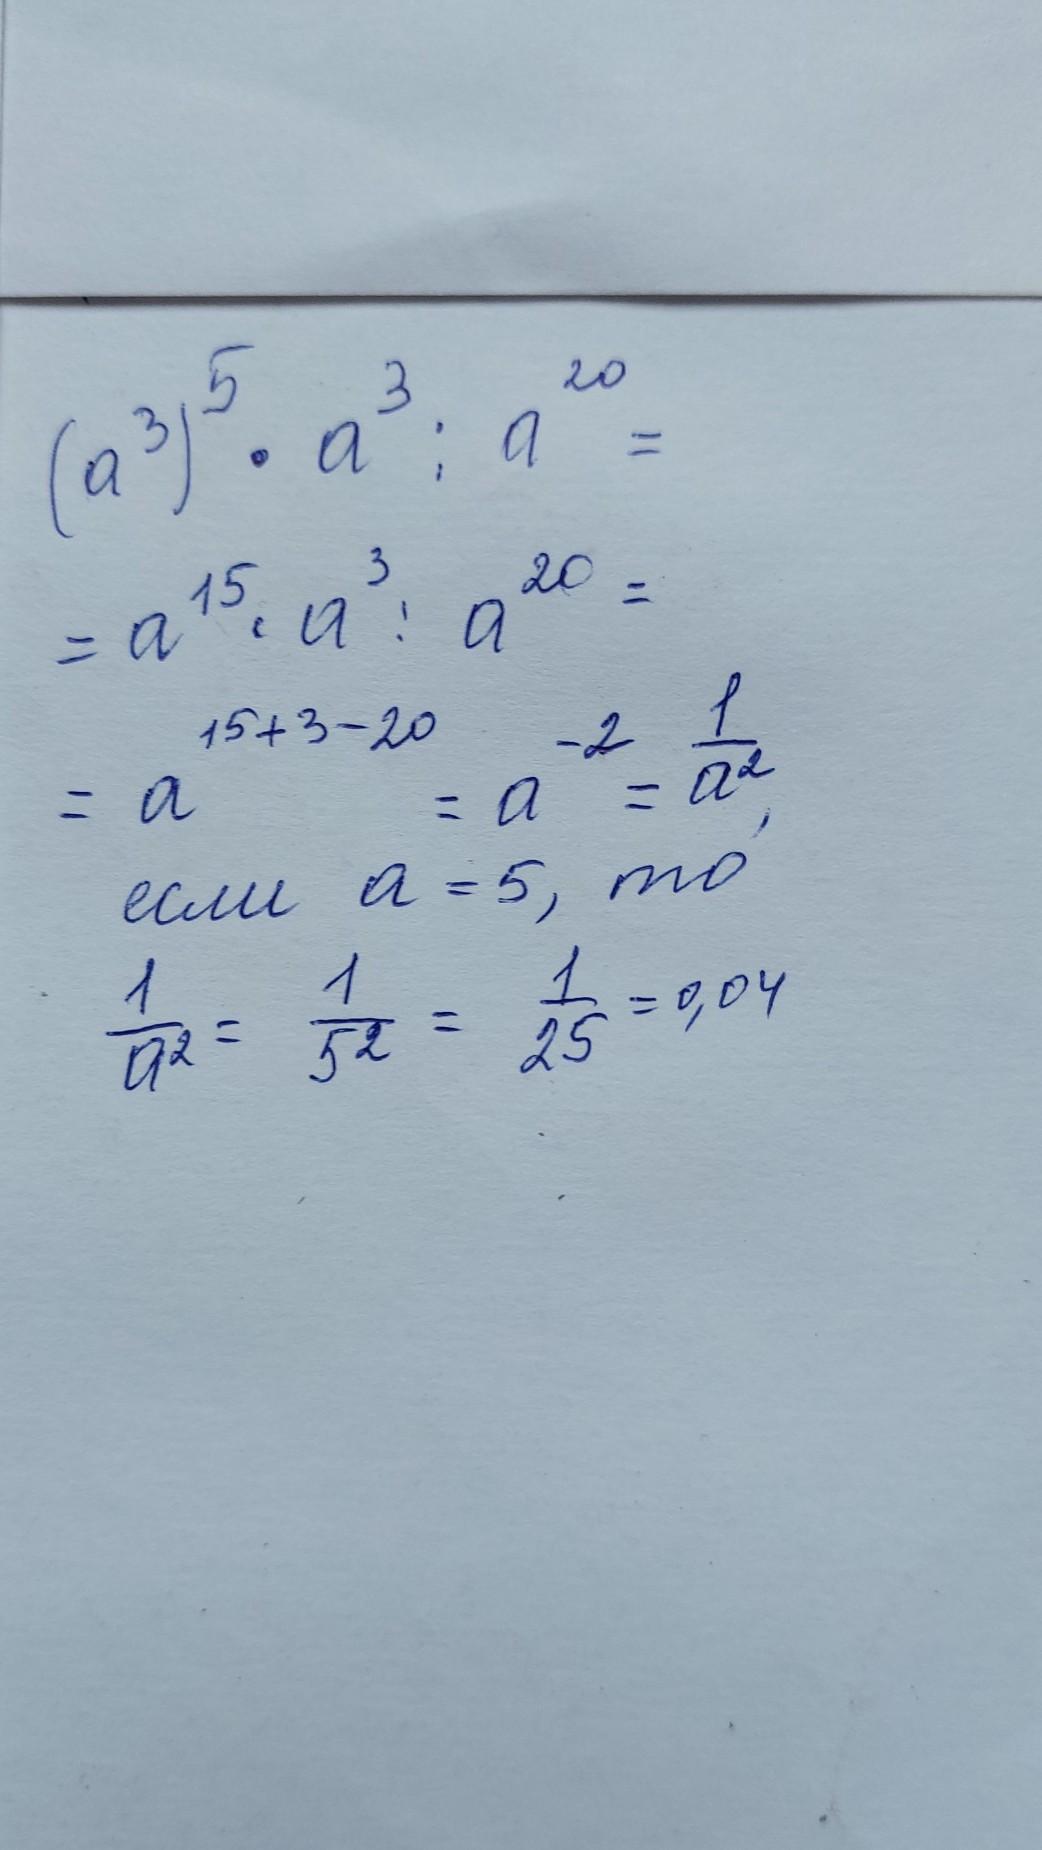 (a³)⁵ · a³ : a²⁰ =
= a¹⁵ · a³ : a²⁰ =
= a¹⁵⁺³⁻²⁰ = a⁻² = 1/a²,
если a = 5, то
1/a² = 1/5² = 1/25 = 0,04